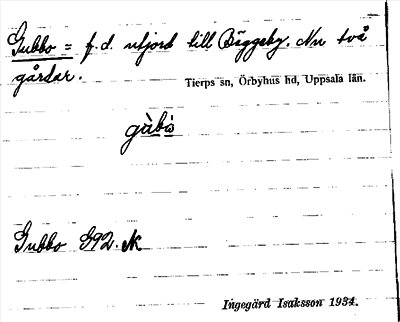 Gubbo = f.d. utjord till Bäggeby. Nu två
gårdar.
Tierps sn, Örbyhus hd, Uppsala län.
gùbω
Gubbo G92. N
Ingegärd Isaksson 1934.